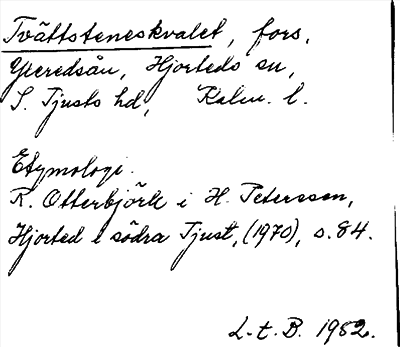 Tvättsteneskvalet, fors,
Yxeredsån, Hjorteds sn,
S. Tjusts hd, Kalm. l.
Etymologi.
R. Otterbjörk i H. Petersson,
Hjorted i södra Tjust, (1970), s. 84.
L.t.B. 1982.